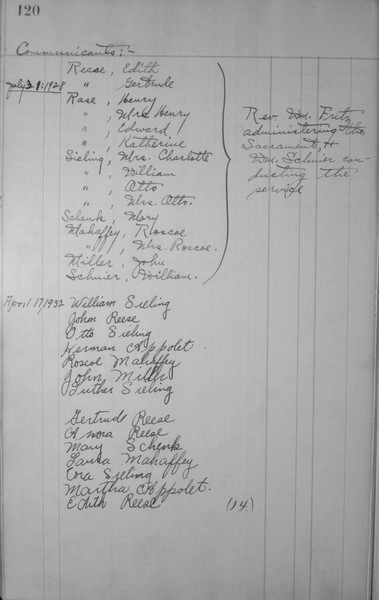 120
Communicants:-
July 31, 1928
Reese, Edith
" Gertrude
Rase, Henry
", Mrs. Henry
", Edward,
", Katherine
Sieling, Mrs. Charlotte
", William
", Otto
", Mrs. Otto.
Schenk, Mary
Mahaffey, Roscoe
", Mrs. Roscoe.
Miller, John
Schnier, William.
Rev. Wm. Fritz
administering the
Sacrament, &
Wm. Schnier con-
ducting the
service
April 17, 1932 William Sieling
John Reese
Otto Sieling
Herman Appolet
Roscoe Mahaffey
John Miller
Luther Sieling
Gertrude Reese
Amora Reese
Mary Schenk
Laura Mahaffey
Cora Sieling
Martha Appolet.
Edith Reese (14)